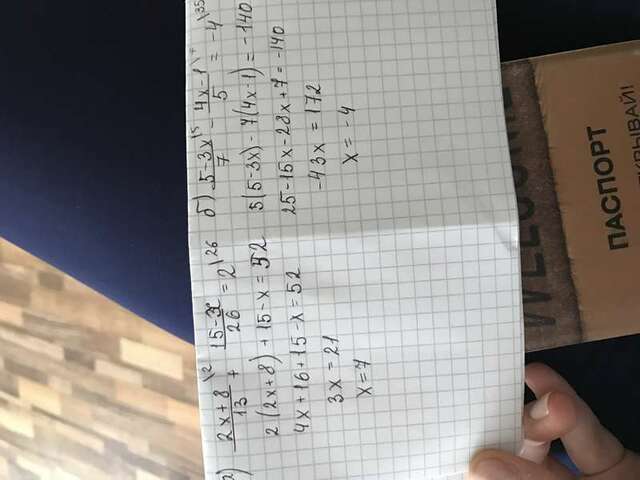 а) (2x+8)/13 \2 + (15-x)/26 = 2 \26
2(2x+8)+15-x=52
4x+16+15-x=52
3x=21
x=7
б) (5-3x)/7 \5 - (4x-1)/5 \7 = -4 \35
5(5-3x)-7(4x-1)=-140
25-15x-28x+7=-140
-43x=172
x=-4
WELCOME
ПАСПОРТ
ОТКРЫВАЙ!